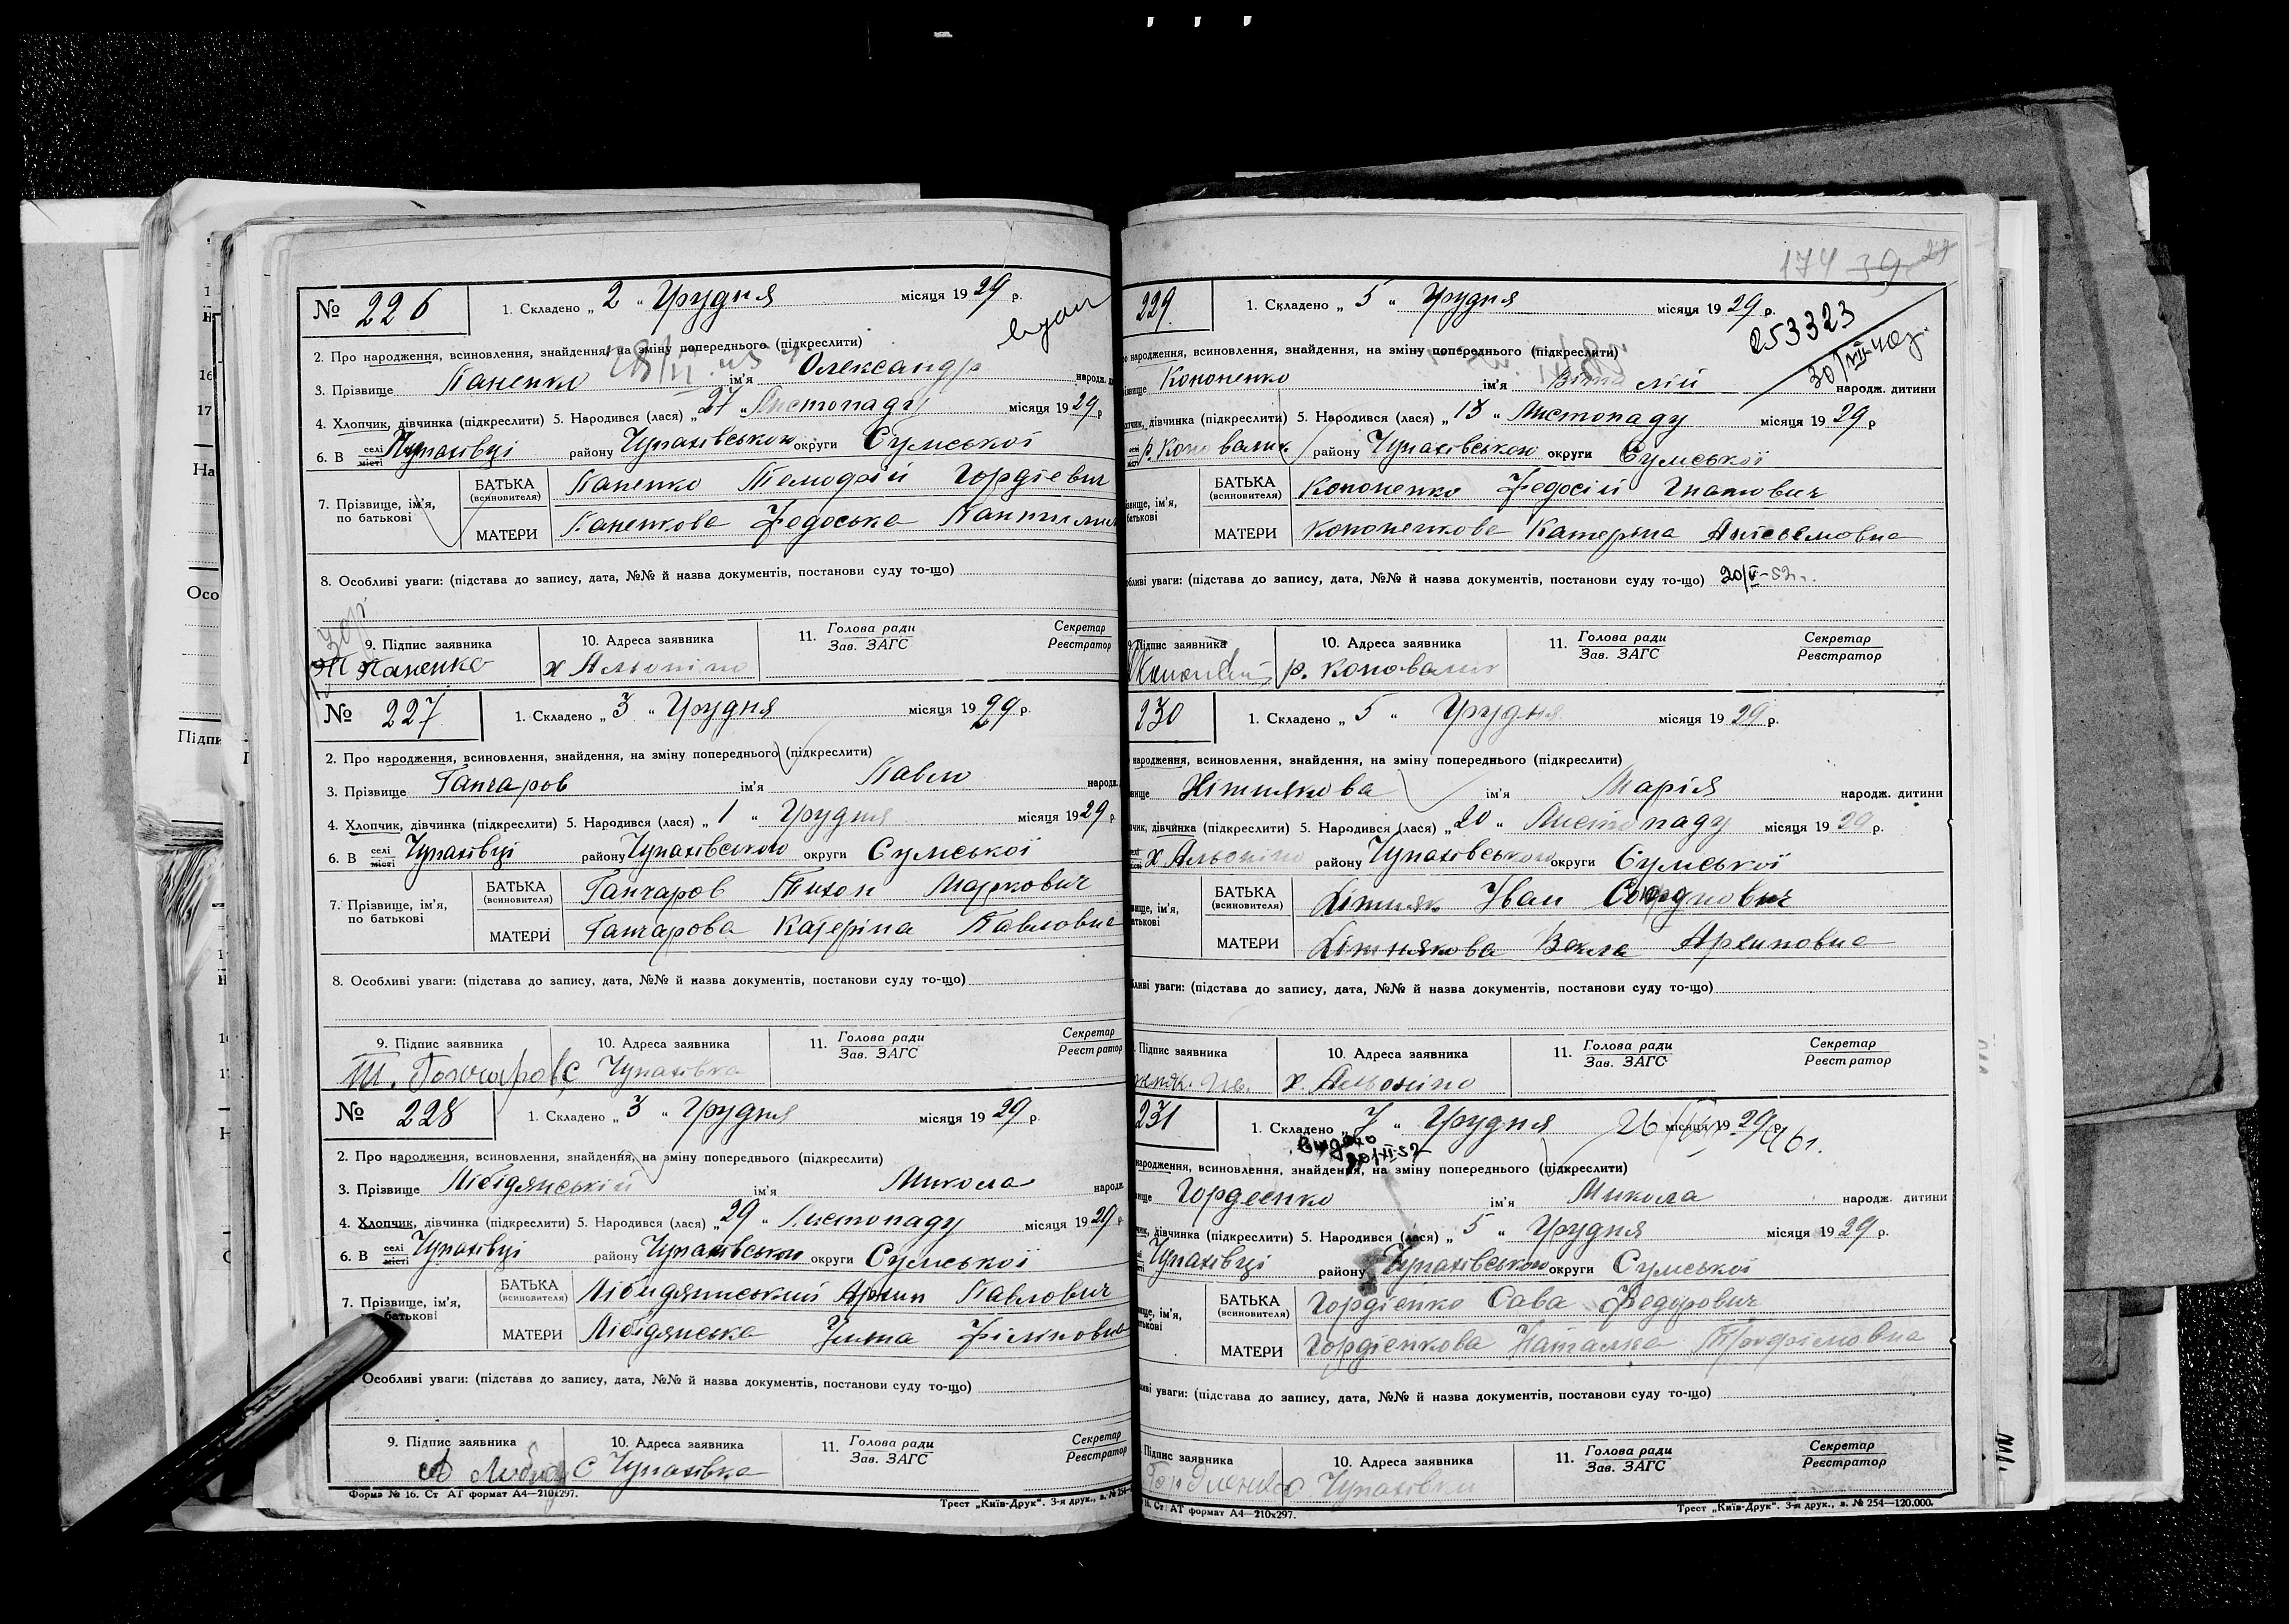 174 39 29
№ 226 1. Складено „ 2 “ Грудня місяця 1929 р.
2. Про народження, всиновлення, знайдення, на зміну попереднього (підкреслити)
3. Прізвище Паненко ім'я Олександр народж.
4. Хлопчик, дівчинка (підкреслити) 5. Народився (лася) „ 27 “ Листопаду місяця 1929 р
6. В селі місті Чупахівці району Чупахівського округи Сумської
7. Прізвище, ім'я, по батькові
БАТЬКА (всиновителя) Паненко Тимофій Гордієвич
МАТЕРИ Паненкова Федоська
8. Особливі уваги: (підстава до запису, дата, №№ й назва документів, постанови суду то-що)
9. Підпис заявника 10. Адреса заявника 11. Голова ради Зав. ЗАГС Секретар Реєстратор
Паненко х Альошіно
№ 227 1. Складено „ 3 “ Грудня місяця 1929 р.
2. Про народження, всиновлення, знайдення, на зміну попереднього (підкреслити)
3. Прізвище Ганчаров ім'я Павло народж.
4. Хлопчик, дівчинка (підкреслити) 5. Народився (лася) „ 1 “ Грудня місяця 1929 р
6. В селі місті Чупахівці району Чупахівського округи Сумської
7. Прізвище, ім'я, по батькові
БАТЬКА (всиновителя) Ганчаров Тихон Маркович
МАТЕРИ Ганчарова Катеріна Павловна
8. Особливі уваги: (підстава до запису, дата, №№ й назва документів, постанови суду то-що)
9. Підпис заявника 10. Адреса заявника 11. Голова ради Зав. ЗАГС Секретар Реєстратор
Т. Гончаров с Чупахівка
№ 228 1. Складено „ 3 “ Грудня місяця 1929 р.
2. Про народження, всиновлення, знайдення, на зміну попереднього (підкреслити)
3. Прізвище Лібідянській ім'я Микола народж
4. Хлопчик, дівчинка (підкреслити) 5. Народився (лася) „ 29 “ Листопаду місяця 1929 р
6. В селі місті Чупахівці району Чупахівського округи Сумської
7. Прізвище, ім'я, по батькові
БАТЬКА (всиновителя) Лібидянський Архип Павлович
МАТЕРИ Лібідянська Уляна Філіповна
Особливі уваги: (підстава до запису, дата, №№ й назва документів, постанови суду то-що)
9. Підпис заявника 10. Адреса заявника 11. Голова ради Зав. ЗАГС Секретар Реєстратор
с Чупахівка
Форма № 16. Ст АТ формат А4—210х297. Трест „Київ-Друк“. 3-я друк., з. № 254
229 1. Складено „ 5 “ Грудня місяця 1929 р.
253323
народження, всиновлення, знайдення, на зміну попереднього (підкреслити)
30/VII-40г.
Кононенко ім'я Віталій народж. дитини
дівчинка (підкреслити) 5. Народився (лася) „ 13 “ Листопаду місяця 1929 р
р. Коновалик району Чупахівського округи Сумської
БАТЬКА (всиновителя) Кононенко Федосій Гнатович
МАТЕРИ Кононенкова Катерина
уваги: (підстава до запису, дата, №№ й назва документів, постанови суду то-що) 20/V-52
Підпис заявника 10. Адреса заявника 11. Голова ради Зав. ЗАГС Секретар Реєстратор
р. Коновалик
230 1. Складено „ 5 “ Грудня місяця 1929 р.
народження, всиновлення, знайдення, на зміну попереднього (підкреслити)
Хітнякова ім'я Марія народж. дитини
дівчинка (підкреслити) 5. Народився (лася) „ 20 “ Листопаду місяця 1929 р.
х Альошіно району Чупахівського округи Сумської
БАТЬКА (всиновителя) Хітняк Іван
МАТЕРИ Хітнякова Векла Архиповна
уваги: (підстава до запису, дата, №№ й назва документів, постанови суду то-що)
Підпис заявника 10. Адреса заявника 11. Голова ради Зав. ЗАГС Секретар Реєстратор
х. Альошіно
231 1. Складено „ 7 “ Грудня місяця 1929 р.
народження, всиновлення, знайдення, на зміну попереднього (підкреслити)
Гордеенко ім'я Микола народж. дитини
дівчинка (підкреслити) 5. Народився (лася) „ 5 “ Грудня місяця 1929 р.
Чупахівці району Чупахівського округи Сумської
БАТЬКА (всиновителя) Гордієнко Сава Федорович
МАТЕРИ Гордієнкова Наталка Трофімовна
уваги: (підстава до запису, дата, №№ й назва документів, постанови суду то-що)
Підпис заявника 10. Адреса заявника 11. Голова ради Зав. ЗАГС Секретар Реєстратор
с Чупахівка
16. Ст АТ формат А4—210х297. Трест „Київ-Друк“. 3-я друк., з. № 254—120.000.